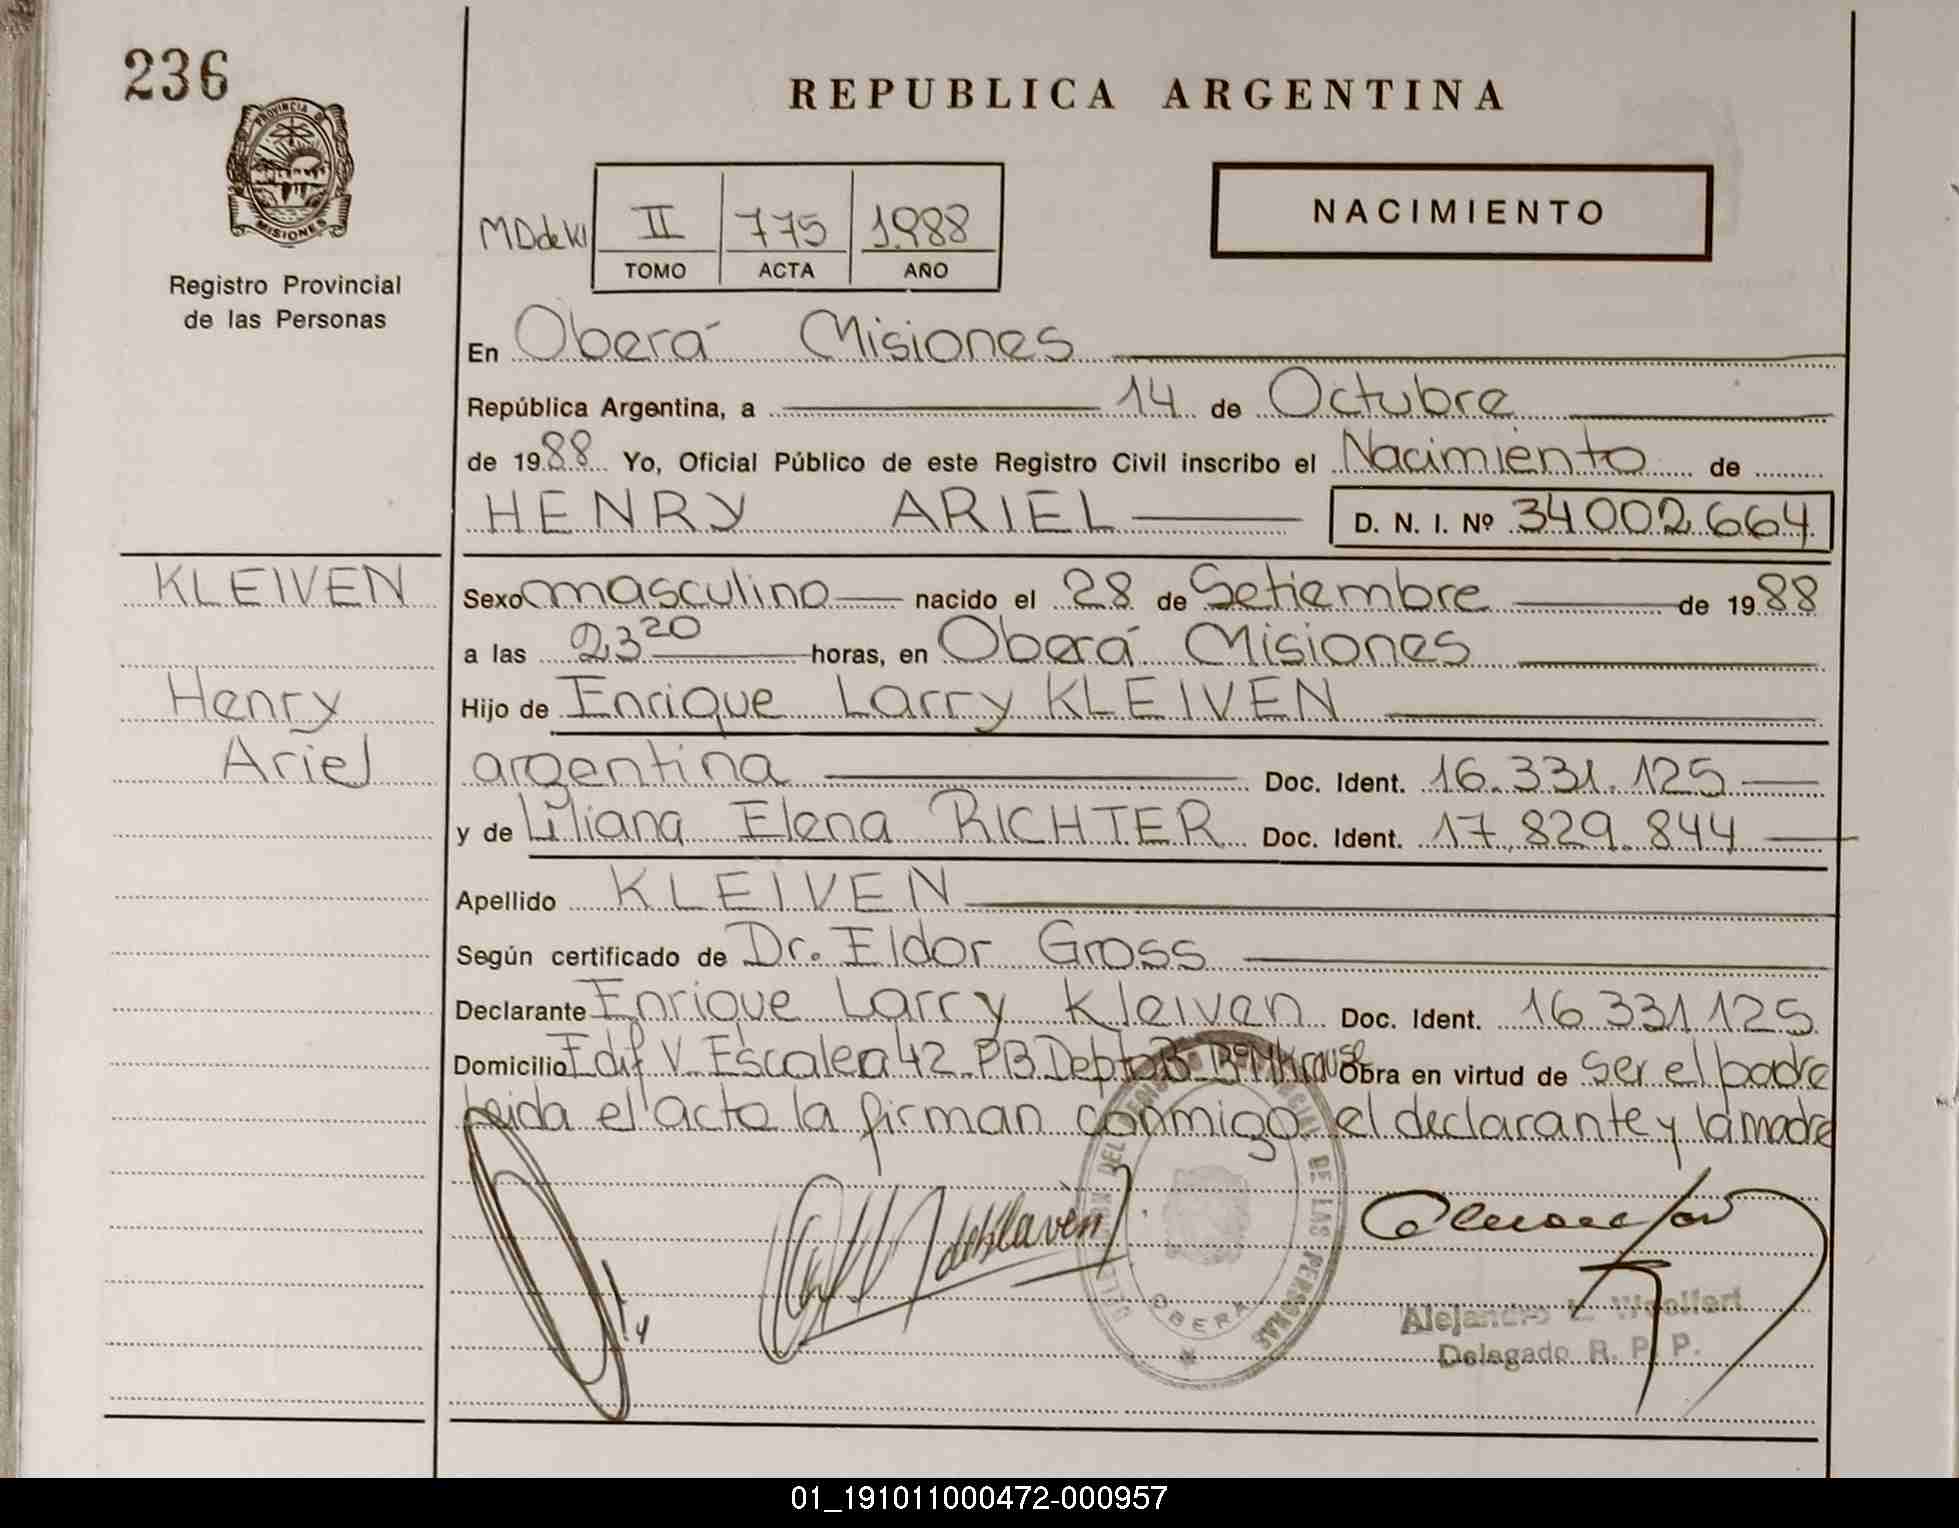 236
REPUBLICA ARGENTINA
PROVINCIA DE
MISIONES
Registro Provincial
de las Personas
MDdeKl
II 775 1.988
TOMO ACTA AÑO
NACIMIENTO
En Oberá Misiones
República Argentina, a 14 de Octubre
de 1988 Yo, Oficial Público de este Registro Civil inscribo el Nacimiento de
HENRY ARIEL D. N. I. Nº 34.002.664
KLEIVEN
Henry
Ariel
Sexo masculino nacido el 28 de Setiembre de 1988
a las 23 20 horas, en Oberá Misiones
Hijo de Enrique Larry KLEIVEN
argentina Doc. Ident. 16.331.125
y de Liliana Elena RICHTER Doc. Ident. 17.829.844
Apellido KLEIVEN
Según certificado de Dr. Eldor Gross
Declarante Enrique Larry Kleiven Doc. Ident. 16 331 125
Domicilio Edif V Escalea 42 PB Depto B Bº M Krause Obra en virtud de ser el padre
Leida el acto la firman conmigo el declarante y la madre
DEL REGISTRO PROVINCIAL DE LAS PERSONAS
OBERA
Alejandro L. Woollert
Delegado R. P. P.
01_191011000472-000957